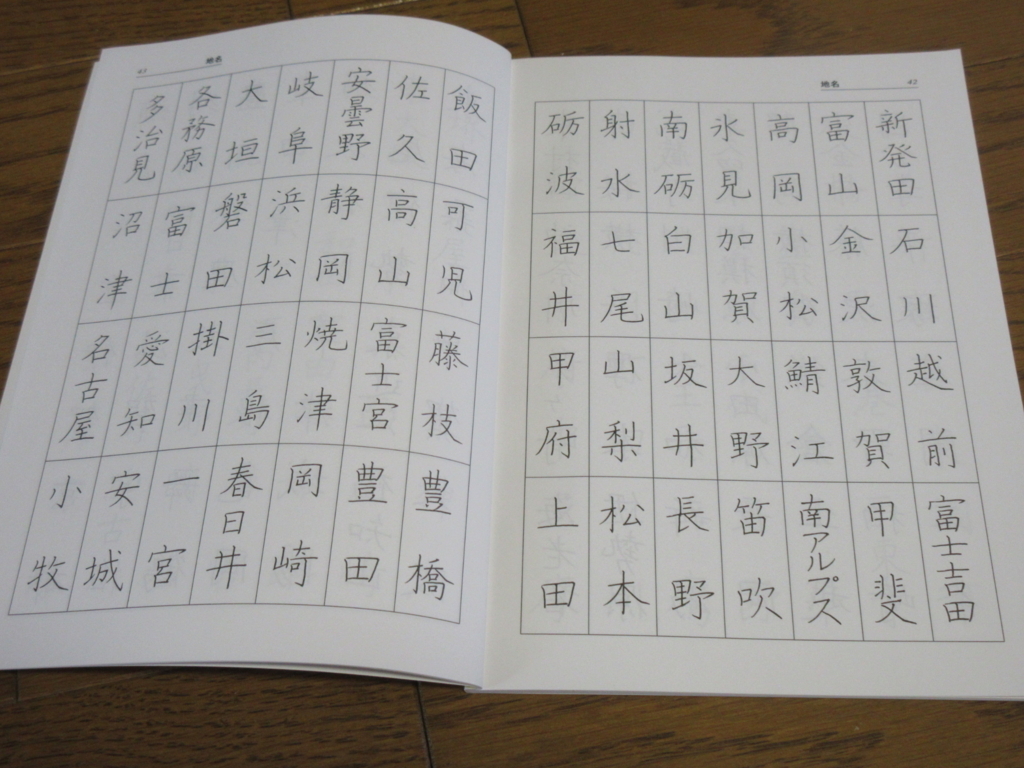 地名
42
新発田
富山
高岡
氷見
南砺
射水
砺波
石川
金沢
小松
加賀
白山
七尾
福井
越前
敦賀
鯖江
大野
坂井
山梨
甲府
富士吉田
甲斐
南アルプス
笛吹
長野
松本
上田
地名
43
飯田
佐久
安曇野
岐阜
大垣
各務原
多治見
可児
高山
静岡
浜松
磐田
富士
沼津
藤枝
富士宮
焼津
三島
掛川
愛知
名古屋
豊橋
豊田
岡崎
春日井
一宮
安城
小牧